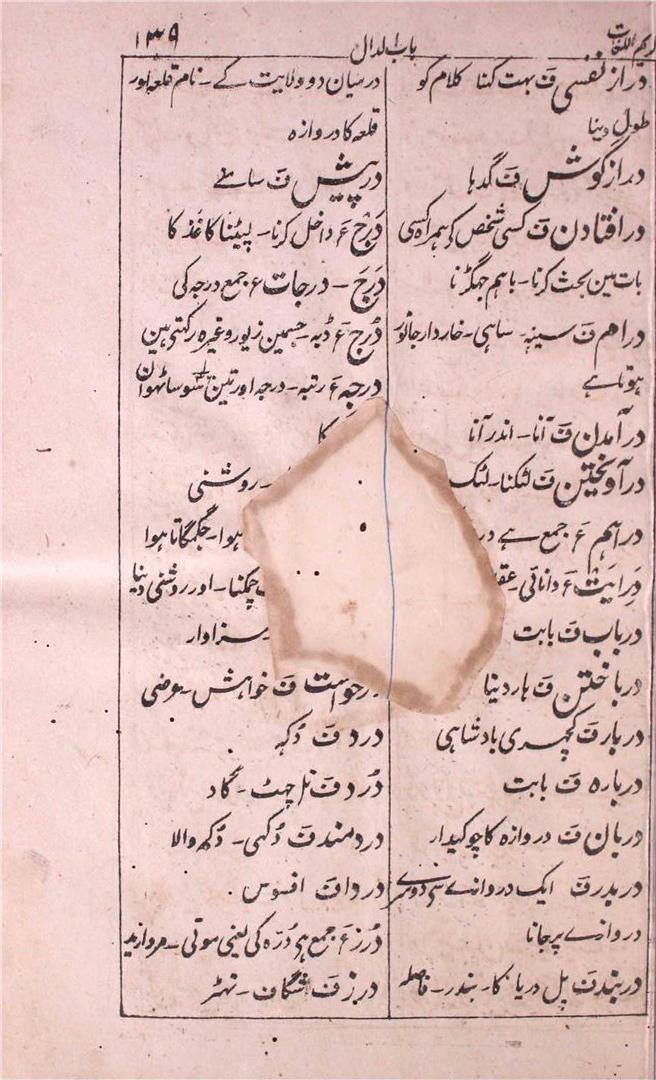 کریم اللغات
باب الدال
۱۳۹
دراز نفسی ف بہت کہنا کلام کو
طول دینا
دراز گوش ف گدہا
درافتادن ف کسی شخص کے ہمراہ کسی
بات مین بحث کرنا۔ باہم جہگڑنا
دراھم ف سینہ۔ ساہی۔ خاردار جانور
ہوتا ہے
درآمدن ف آنا۔ اندر آنا
درآویختن ف لٹکنا۔ لٹک
دراہم ع جمع ہے در
دِرایَت ع دانائی۔ عقل
درباب ف بابت
درباختن ف ہار دینا
دربار ف کچہری بادشاہی
دربارہ ف بابت
دربان ف دروازہ کا چوکیدار
دربدر ف ایک دروازے سے دوسرے
دروازے پر جانا
دربند ف پل دریا کا۔ بندر۔ فاصلہ
درمیان دو ولایت کے۔ نام قلعہ اور
قلعہ کا دروازہ
درپیش ف سامنے
دَرْج ع داخل کرنا۔ لپیٹنا کاغذ کا
دَرَجَ۔ درجات ع جمع درجہ کی
دُرْج ع ڈبہ۔ جسمین زیور وغیرہ رکہتی ہین
درجہ ع رتبہ۔ درجہ اور تین سو ساٹہوان
کا
۔ روشنی
ہوا۔ جگمگاتا ہوا
چمکنا۔ اور روشنی دینا
سزاوار
درخواست ف خواہش۔ عرضی
درد ف دُکہہ
دُرد ف تلچہٹ۔ گاد
دردمند ف دُکہی۔ دُکھ والا
دردا ف افسوس
دُرَر ع جمع ہے دُرّہ کی یعنی موتی۔ مروارید
درز ف شگاف۔